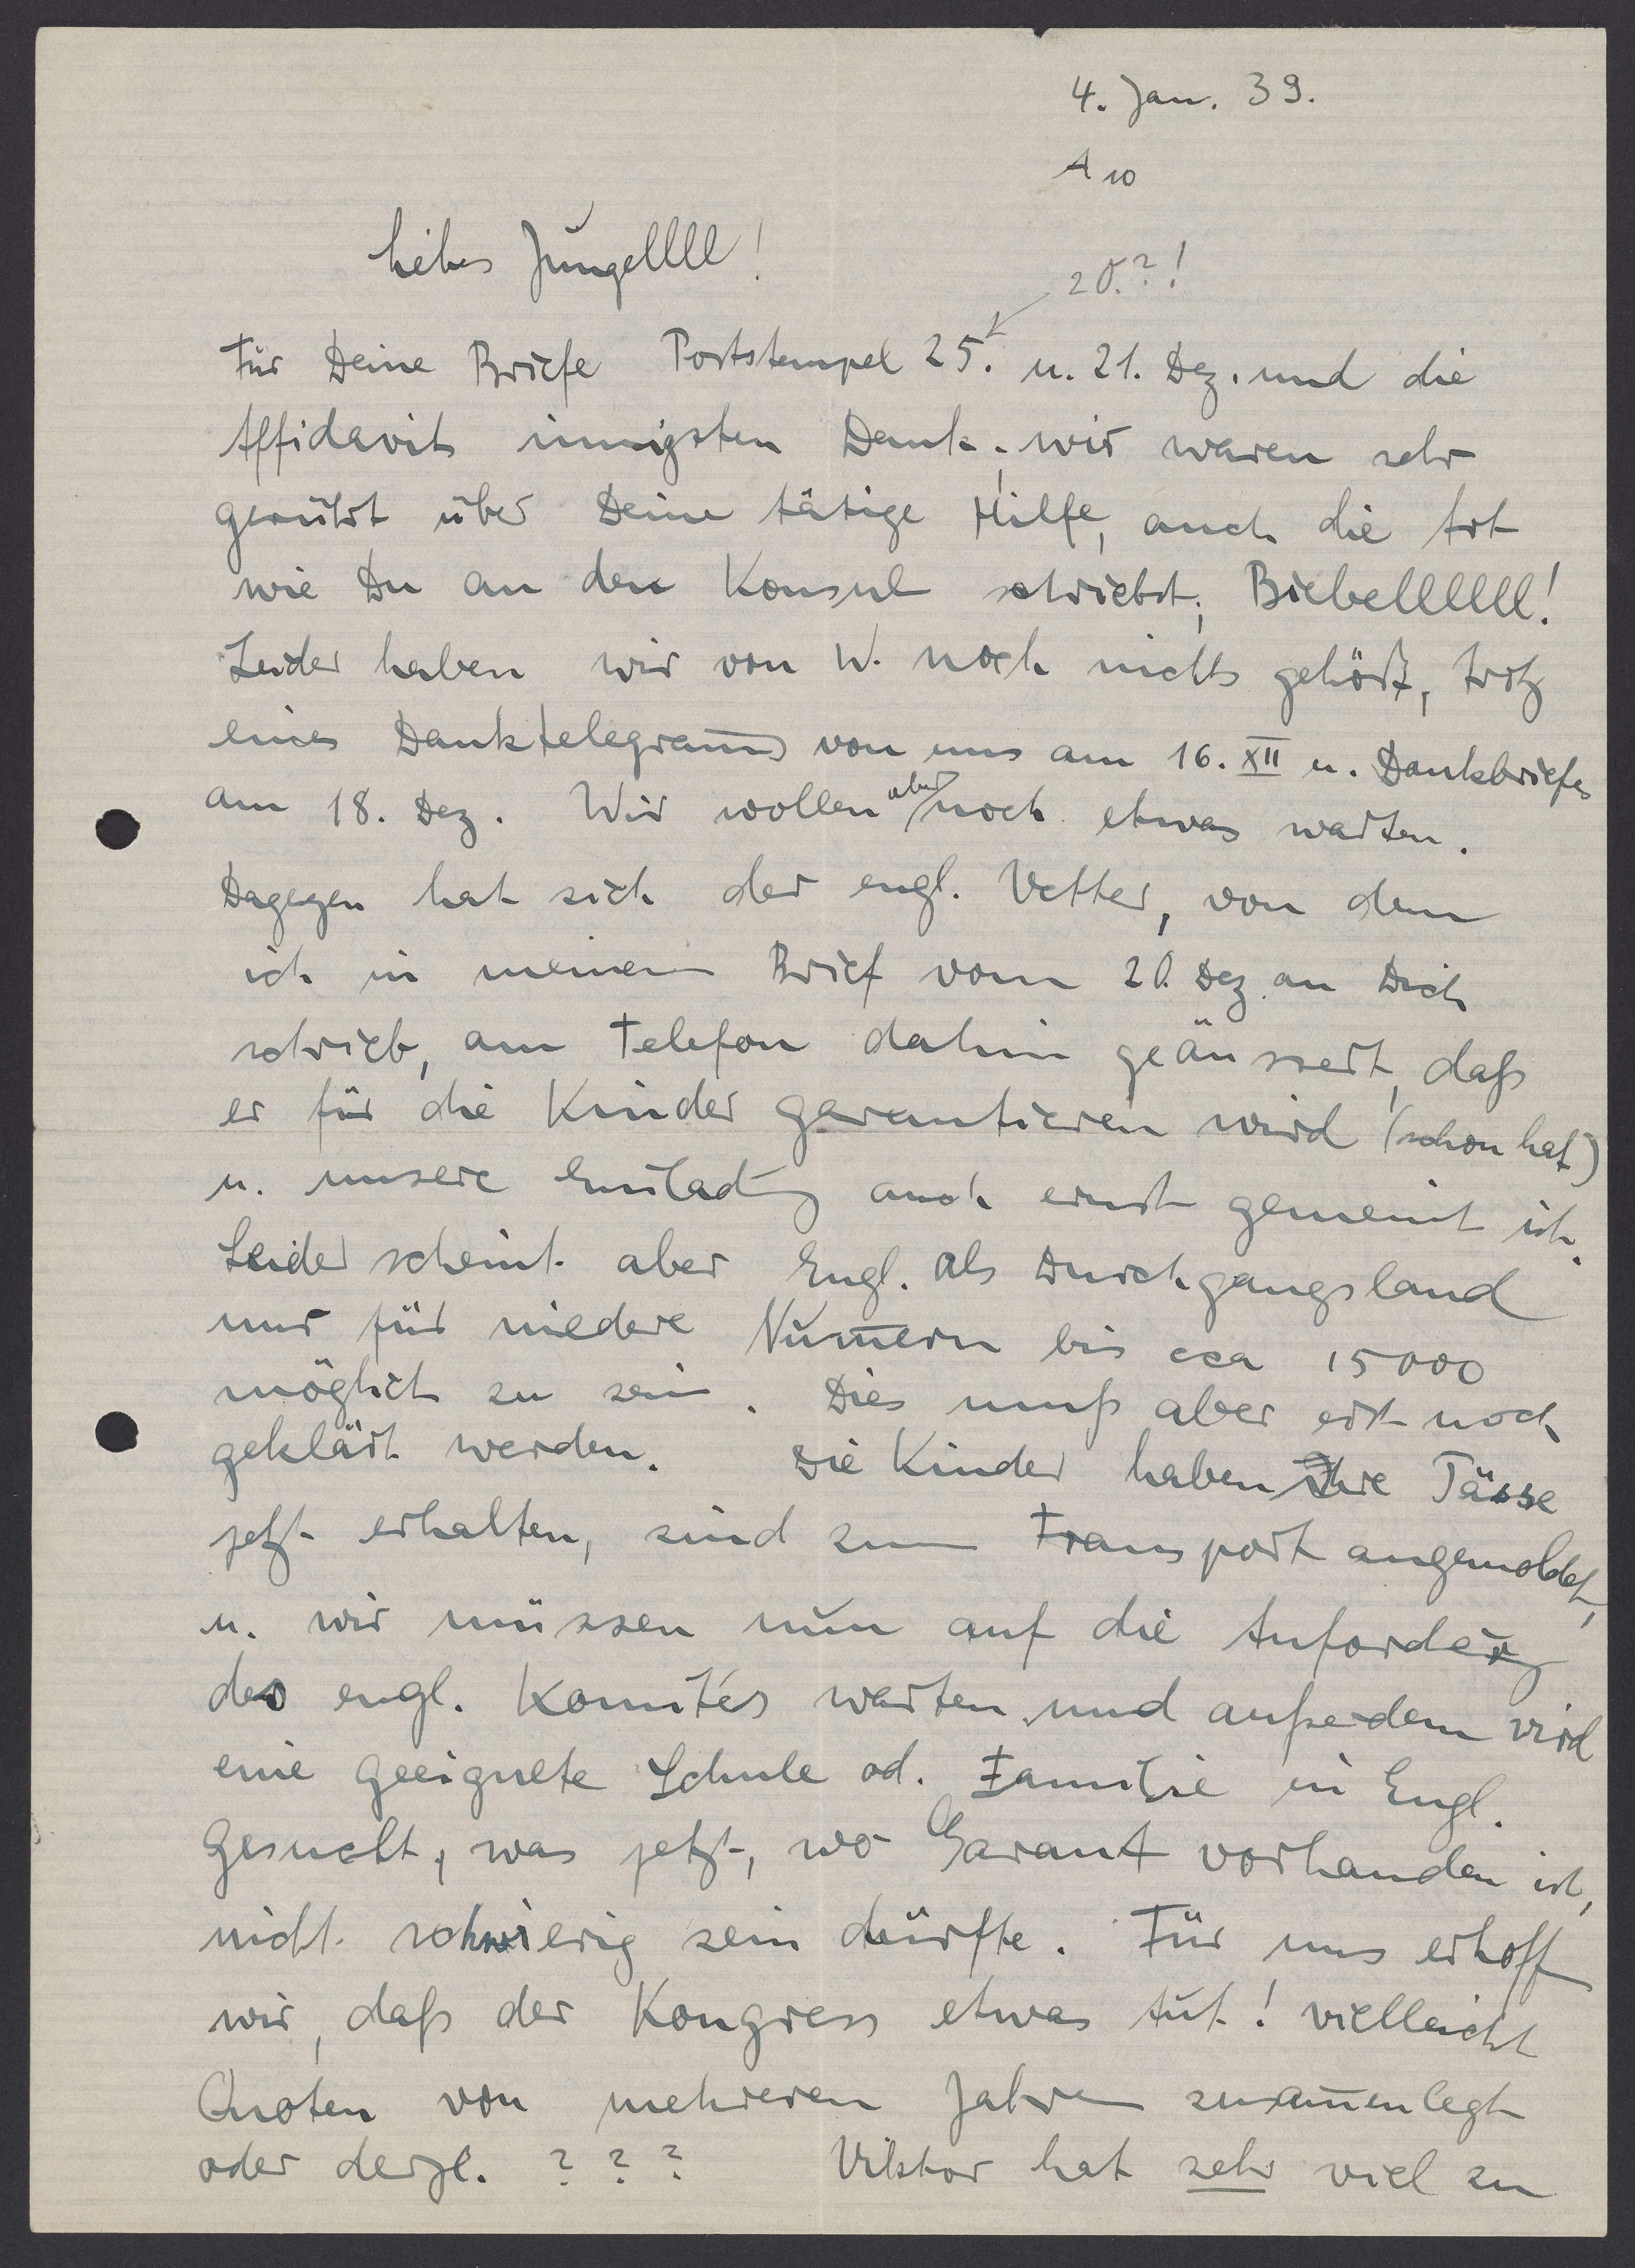 4. Jan. 39.
A 10
Liebes Jungellll!
20.?!
Für Deine Briefe Poststempel 25. u. 21. Dez. und die
Affidavits innigsten Dank; wir waren sehr
gerührt über Deine tätige Hilfe, auch die Art
wie Du an den Konsul schriebst; Biebellllll!
Leider haben wir von W. noch nichts gehört, trotz
eines Danktelegram̅s von uns am 16. XII u. Dankbriefes
am 18. Dez. Wir wollen aber noch etwas warten.
Dagegen hat sich der engl. Vetter, von dem
ich in meinem Brief vom 20. Dez. an Dich
schrieb, am Telefon dahin geäussert, daß
er für die Kinder garantieren wird (schon hat)
u. unsere Einladg auch ernst gemeint ist.
Leider scheint aber Engl. als Durchgangsland
nur für niedere Num̅ern bis cca 15000
möglich zu sein. Dies muß aber erst noch
geklärt werden. Die Kinder haben ihre Pässe
jetzt erhalten, sind zum Transport angemeldet,
u. wir müssen nun auf die Anforderg
des engl. Komités warten und außerdem wird
eine geeignete Schule od. Familie in Engl.
gesucht, was jetzt, wo Garant vorhanden ist,
nicht schwierig sein dürfte. Für uns erhoffen
wir, daß der Kongress etwas tut! vielleicht
Quoten von mehreren Jahren zusam̅enlegt
oder dergl. ? ? ? Viktor hat sehr viel zu